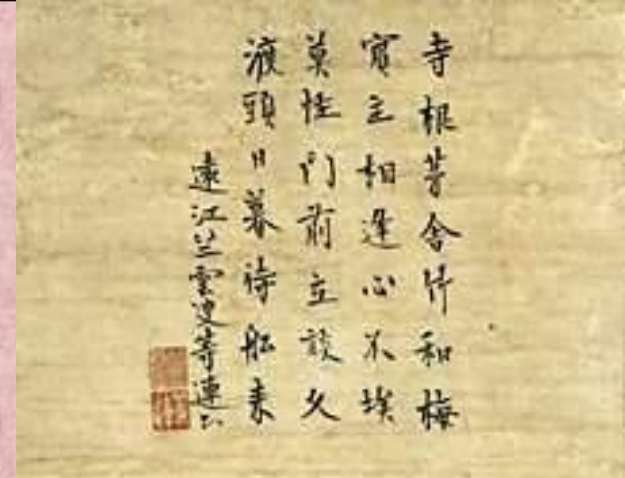 寺根茅舍竹和梅
賓主相逢心不埃
莫怪門前立談久
渡頭日暮待船来
遠江兰雲